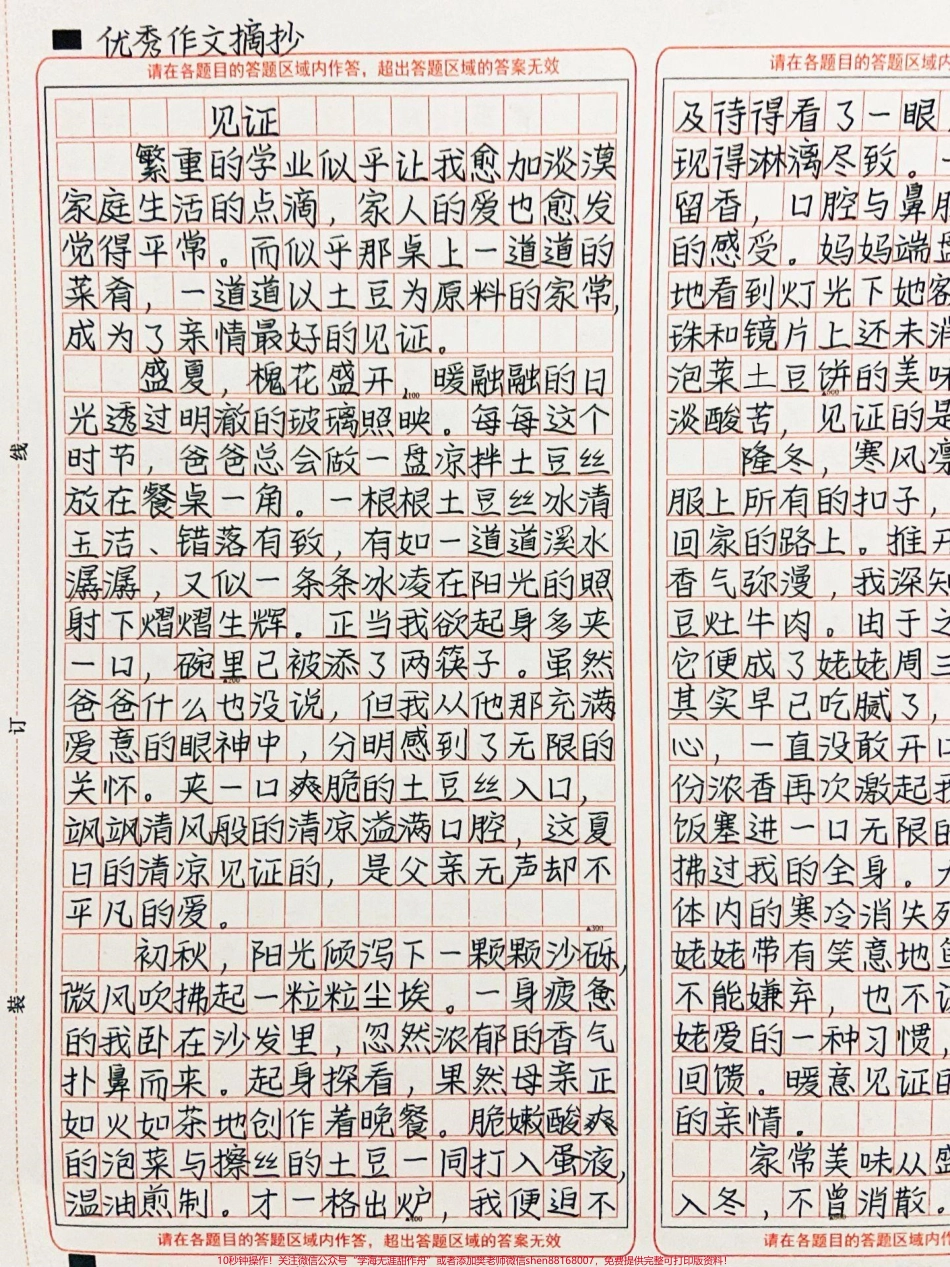 优秀作文摘抄
请在各题目的答题区域内作答，超出答题区域的答案无效
见证
繁重的学业似乎让我愈加淡漠
家庭生活的点滴，家人的爱也愈发
觉得平常。而似乎那桌上一道道的
菜肴，一道道以土豆为原料的家常，
成为了亲情最好的见证。
盛夏，槐花盛开，暖融融的日
▲100
光透过明澈的玻璃照映。每每这个
时节，爸爸总会做一盘凉拌土豆丝
放在餐桌一角。一根根土豆丝冰清
玉洁、错落有致，有如一道道溪水
潺潺，又似一条条冰凌在阳光的照
射下熠熠生辉。正当我欲起身多夹
一口，碗里已被添了两筷子。虽然
▲200
爸爸什么也没说，但我从他那充满
爱意的眼神中，分明感到了无限的
关怀。夹一口爽脆的土豆丝入口，
飒飒清风般的清凉溢满口腔，这夏
日的清凉见证的，是父亲无声却不
平凡的爱。
▲300
初秋，阳光倾泻下一颗颗沙砾，
微风吹拂起一粒粒尘埃。一身疲惫
的我卧在沙发里，忽然浓郁的香气
扑鼻而来。起身探看，果然母亲正
如火如荼地创作着晚餐。脆嫩酸爽
的泡菜与擦丝的土豆一同打入蛋液，
温油煎制。才一格出炉，我便迫不
▲400
请在各题目的答题区域内作答，超出答题区域的答案无效
线
订
装
请在各题目的答题区域内
及待得看了一眼
现得淋漓尽致。
留香，口腔与鼻
的感受。妈妈端
地看到灯光下她
珠和镜片上还未
泡菜土豆饼的美味
▲500
淡酸苦，见证的是
隆冬，寒风凛
服上所有的扣子，
回家的路上。推开
香气弥漫，我深知
豆灶牛肉。由于
它便成了姥姥周三
其实早已吃腻了，
心，一直没敢开口
份浓香再次激起
饭塞进一口无限的
拂过我的全身。
体内的寒冷消失
姥姥带有笑意地
不能嫌弃，也不
姥爱的一种习惯，
回馈。暖意见证的
的亲情。
家常美味从盛
入冬，不曾消散。
请在各题目的答题区域内
10秒钟操作！关注微信公众号“学海无涯甜作舟”或者添加樊老师微信shen88168007，免费提供完整可打印版资料！